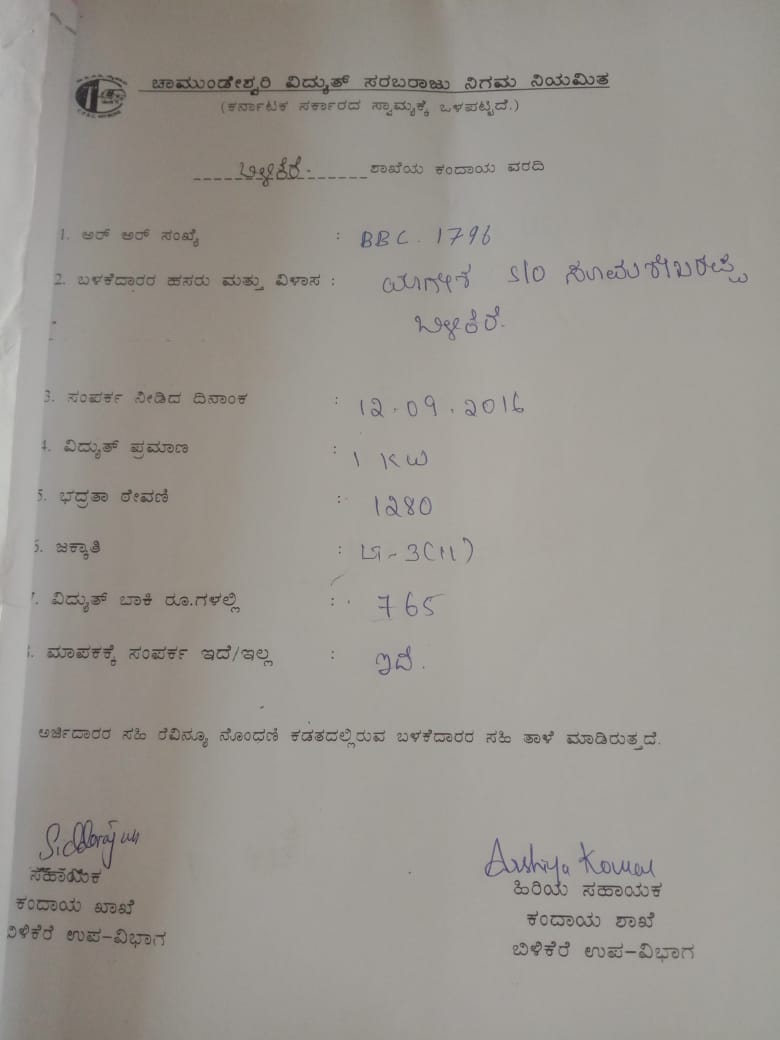 ಚಾಮುಂಡೇಶ್ವರಿ ವಿದ್ಯುತ್ ಸರಬರಾಜು ನಿಗಮ ನಿಯಮಿತ
(ಕರ್ನಾಟಕ ಸರ್ಕಾರದ ಸ್ವಾಮ್ಯಕ್ಕೆ ಒಳಪಟ್ಟಿದೆ.)
ಬಿಳಿಕೆರೆ ಶಾಖೆಯ ಕಂದಾಯ ವರದಿ
1. ಆರ್ ಆರ್ ಸಂಖ್ಯೆ : BBC. 1796
2. ಬಳಕೆದಾರರ ಹಸರು ಮತ್ತು ವಿಳಾಸ : S/O
ಬಿಳಿಕೆರೆ.
3. ಸಂಪರ್ಕ ನೀಡಿದ ದಿನಾಂಕ : 12.09.2016
4. ವಿದ್ಯುತ್ ಪ್ರಮಾಣ : 1 KW
5. ಭದ್ರತಾ ಠೇವಣಿ : 1280
6. ಜಕ್ಕಾತಿ :
7. ವಿದ್ಯುತ್ ಬಾಕಿ ರೂ.ಗಳಲ್ಲಿ : 765
ಮಾಪಕಕ್ಕೆ ಸಂಪರ್ಕ ಇದೆ/ಇಲ್ಲ : ಇದೆ.
ಅರ್ಜಿದಾರರ ಸಹಿ ರೆವಿನ್ಯೂ ನೊಂಧಣಿ ಕಡತದಲ್ಲಿರುವ ಬಳಕೆದಾರರ ಸಹಿ ತಾಳೆ ಮಾಡಿರುತ್ತದೆ.
ಸಹಾಯಕ
ಕಂದಾಯ ಖಾಖೆ
ಬಿಳಿಕೆರೆ ಉಪ-ವಿಭಾಗ
Arshiya Komal
ಹಿರಿಯ ಸಹಾಯಕ
ಕಂದಾಯ ಶಾಖೆ
ಬಿಳಿಕೆರೆ ಉಪ-ವಿಭಾಗ